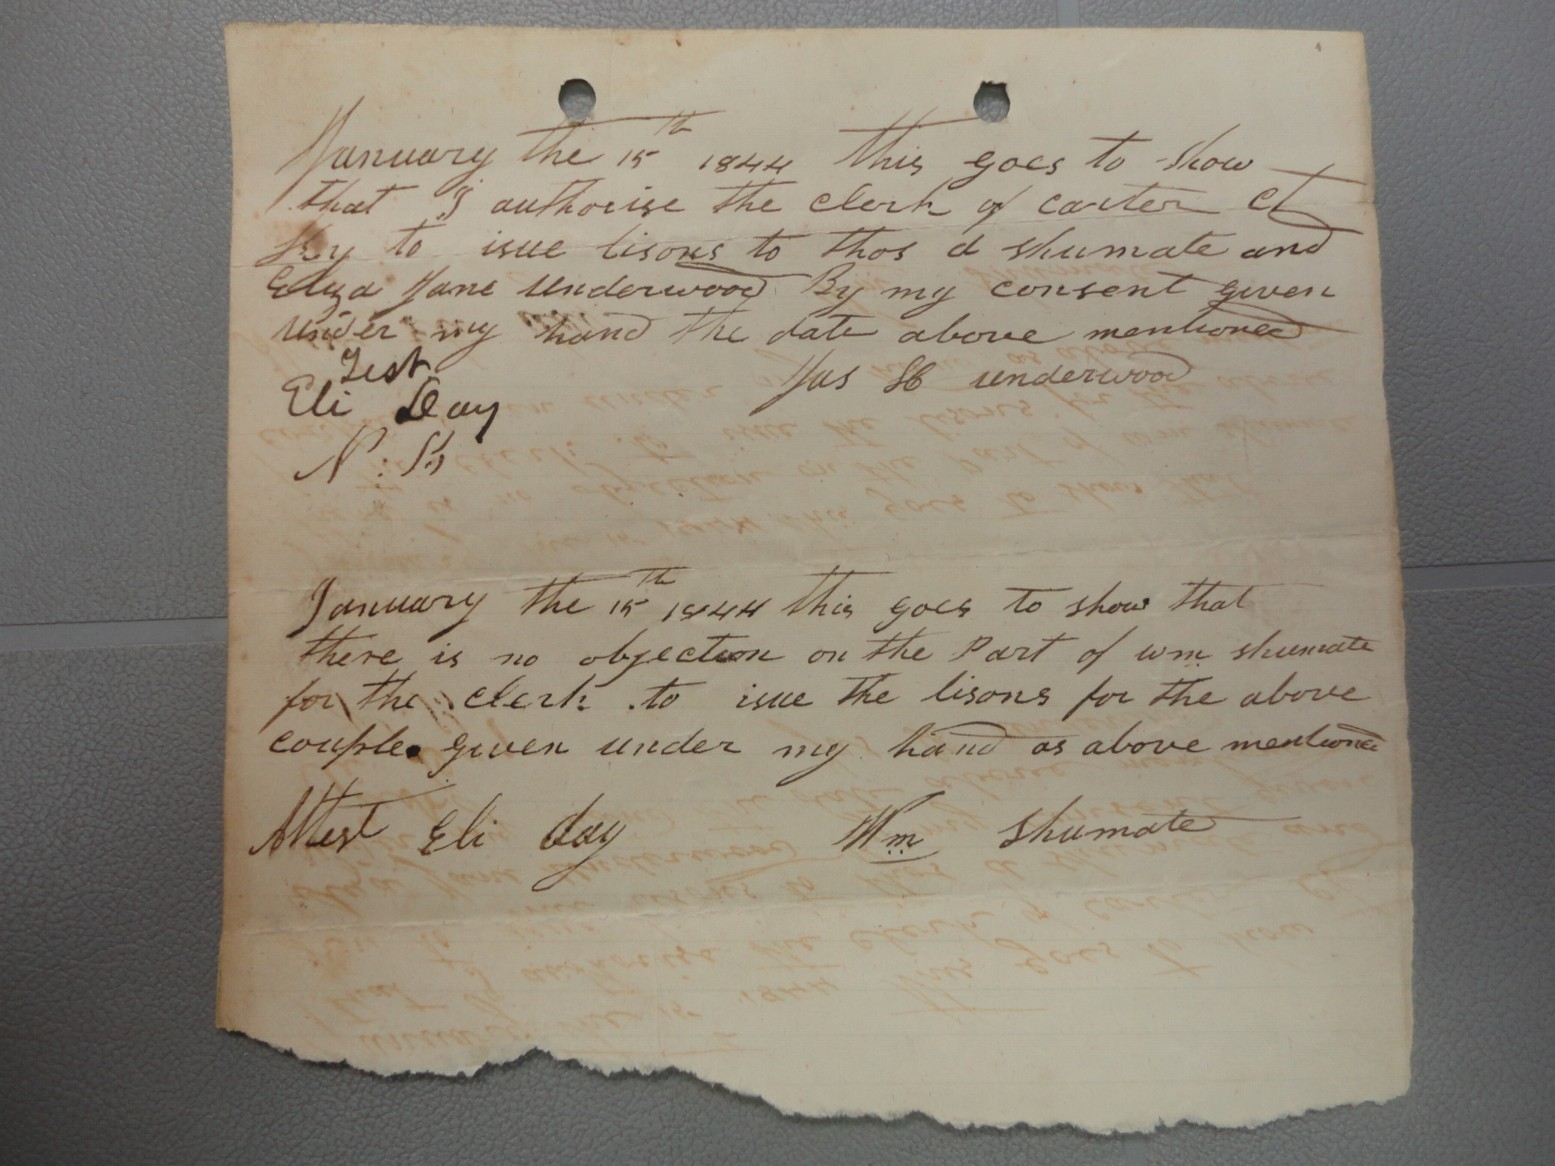 January the 15th 1844 this goes to show
that I authorise the clerk of carter Ct
Ky to isue lisons to thos d shumate and
Eliza Jane underwood By my consent given
under my hand the date above mentioned
Test
Jas H underwood
Eli Day
January the 15th 1844 this goes to show that
there is no objection on the Part of wm shumate
for the clerk to isue the lisons for the above
couple given under my hand as above mentioned
Attest Eli day Wm shumate